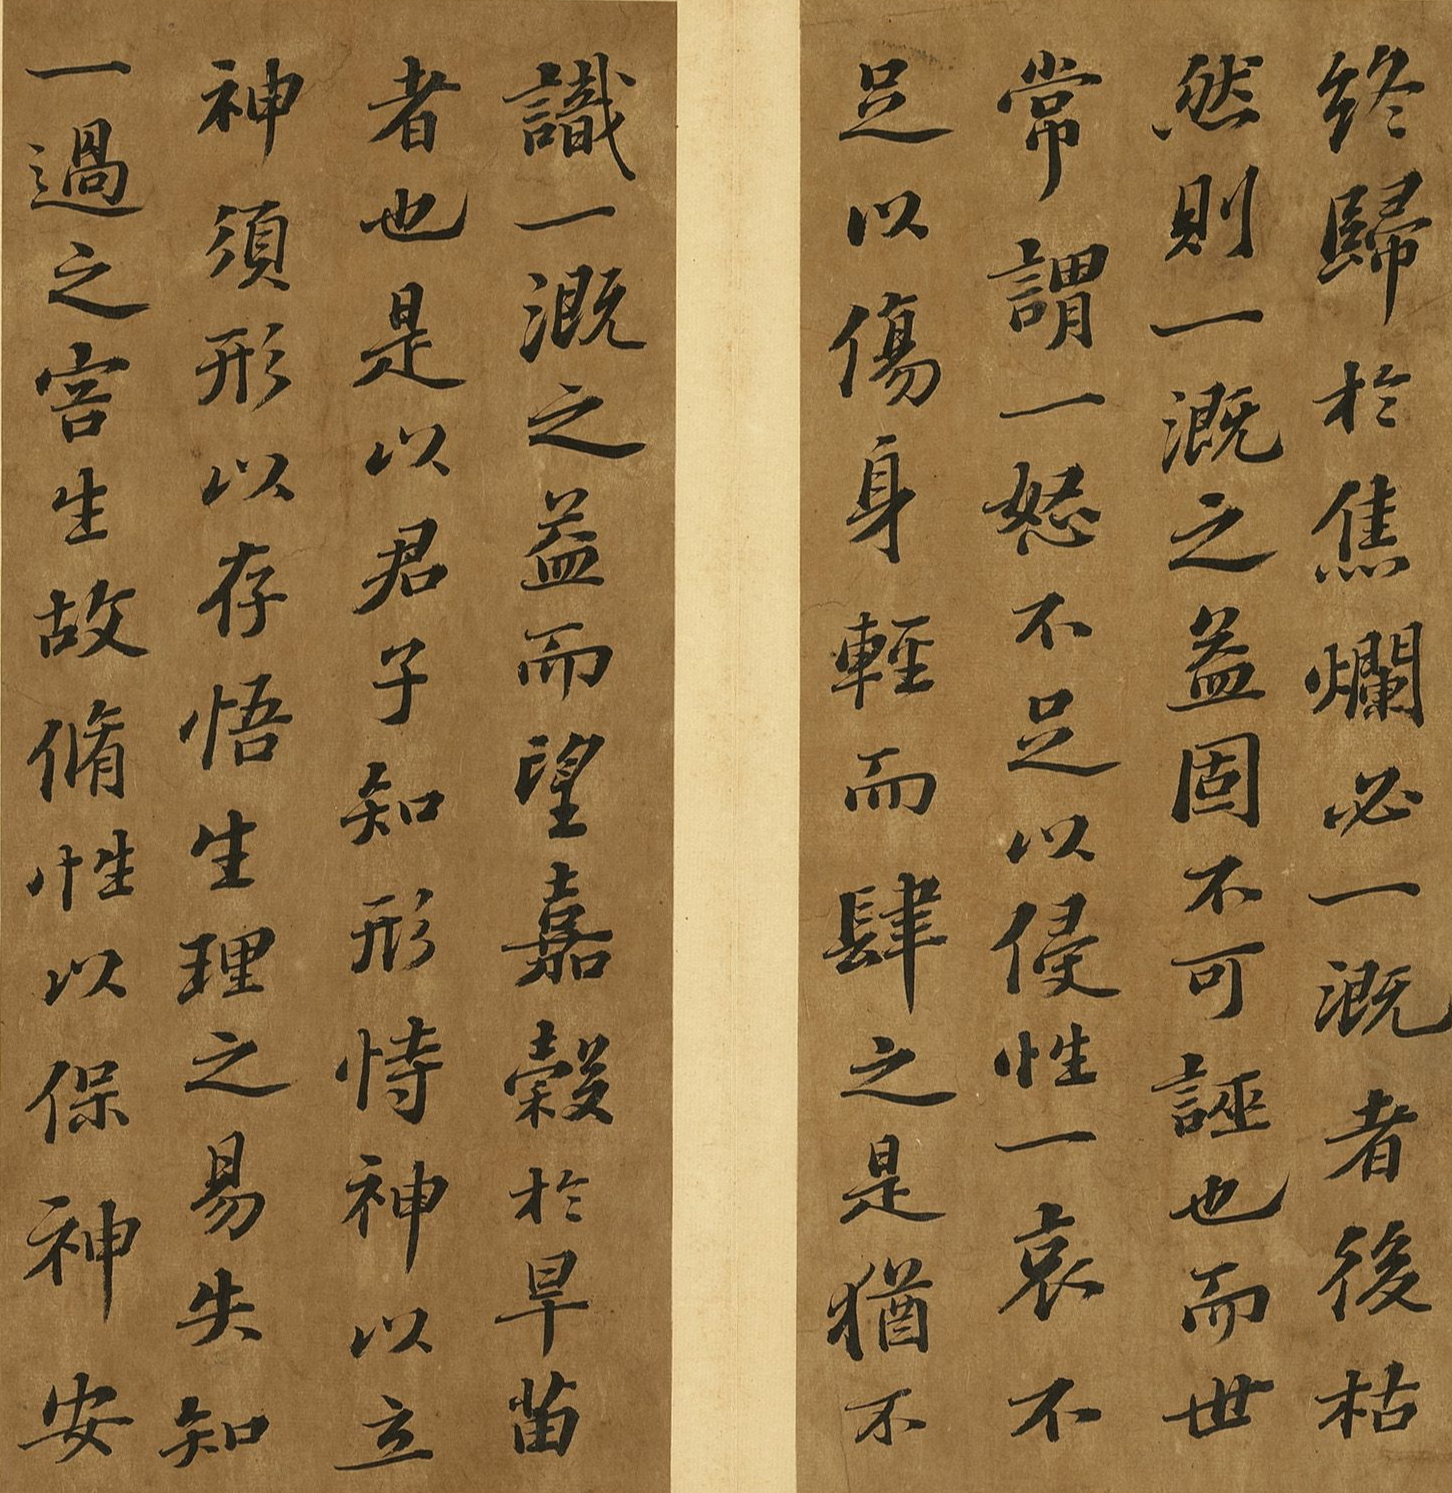 終歸於焦爛必一溉者後枯
然則一溉之益固不可誣也而世
常謂一怒不足以侵性一哀不
足以傷身輕而肆之是猶不
識一溉之益而望嘉穀於旱苗
者也是以君子知形恃神以立
神須形以存悟生理之易失知
一過之害生故脩性以保神安